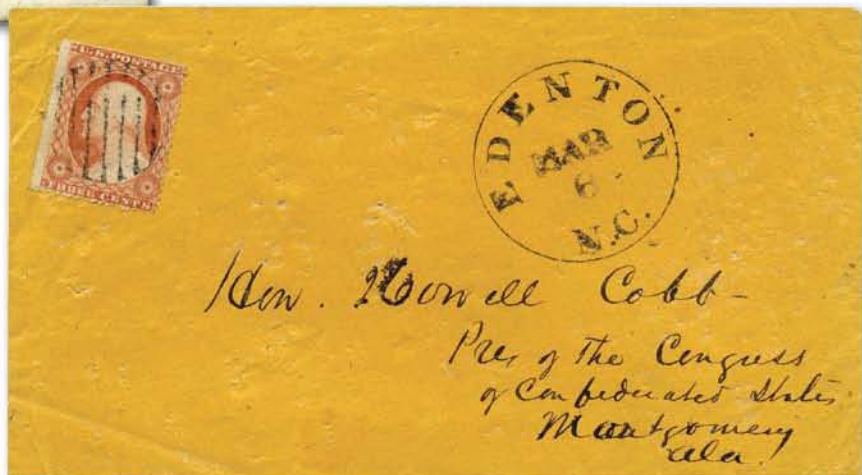 U.S. POSTAGE
THREE CENTS
EDENTON
MAR
6
N.C.
Hon. Howell Cobb
Pres of the Congress
of Confederated States
Montgomery
Ala.